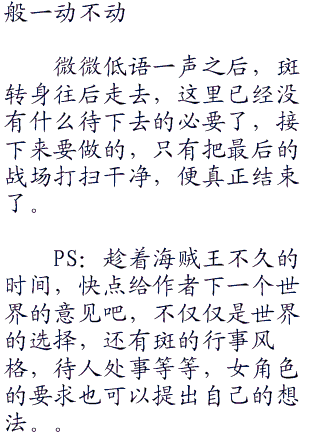 般一动不动
微微低语一声之后，斑
转身往后走去，这里已经没
有什么待下去的必要了，接
下来要做的，只有把最后的
战场打扫干净，便真正结束
了。
PS：趁着海贼王不久的
时间，快点给作者下一个世
界的意见吧，不仅仅是世界
的选择，还有斑的行事风
格，待人处事等等，女角色
的要求也可以提出自己的想
法。。